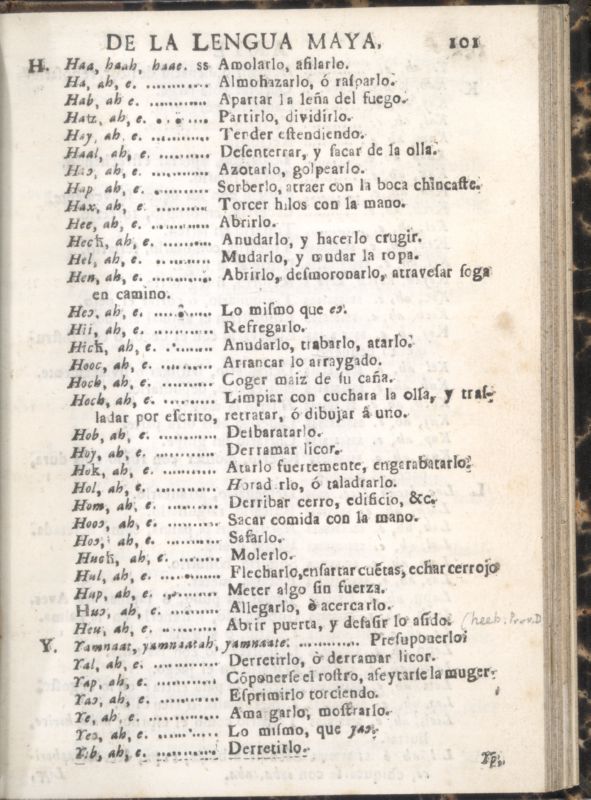 DE LA LENGUA MAYA. 101
H. Haa, haab, haae. ss Amolarlo, aſilarlo.
Ha, ab, e. ........... Almohazarlo, ó raſparlo.
Hab, ab e. ........... Apartar la leña del fuego.
Hatz, ab, e. ........... Partirlo, dividirlo.
Hay, ab, e. ........... Tender eſtendiendo.
Haal, ab, e. ........... Deſenterrar, y ſacar de la olla.
Haɔ, ab, e. ........... Azotarlo, golpearlo.
Hap ab, e. ........... Sorberlo, atraer con la boca chincaſte.
Hax, ab, e. ........... Torcer hilos con la mano.
Hee, ab, e. ........... Abrirlo.
Hecħ, ab, e. ........... Anudarlo, y hacerlo crugir.
Hel, ab, e. ........... Mudarlo, y mudar la ropa.
Hen, ab, e. ........... Abrirlo, deſmoronarlo, atraveſar ſoga
en camino.
Heɔ, ab, e. ........... Lo miſmo que eɔ.
Hii, ab, e. ........... Refregarlo.
Hicħ, ab, e. ........... Anudarlo, trabarlo, atarlo.
Hooc, ab, e. ........... Arrancar lo arraygado.
Hoch, ab, e. ........... Coger maiz de ſu caña.
Hoch, ab, e. ........... Limpiar con cuchara la olla, y traſ-
ladar por eſcrito, retratar, ó dibujar á uno.
Hob, ab, e. ........... Deſbaratarlo.
Hoy, ab, e. ........... Derramar licor.
Hok, ab, e. ........... Atarlo fuertemente, engarabatarlo.
Hol, ab, e. ........... Horadarlo, ó taladrarlo.
Hom, ab, e. ........... Derribar cerro, edificio, &c.
Hooɔ, ab, e. ........... Sacar comida con la mano.
Hoɔ, ab, e. ........... Safarlo.
Hucħ, ab, e. ........... Molerlo.
Hul, ab, e. ........... Flecharlo, enſartar cuẽtas, echar cerrojo
Hup, ab, e. ........... Meter algo ſin fuerza.
Huɔ, ab, e. ........... Allegarlo, ò acercarlo.
Heu, ab, e. ........... Abrir puerta, y deſaſir lo aſido. (heeb: Prov. D
Y. Yamnaat, yamnaatab, yamnaate. ........... Preſuponerlo.
Yal, ab, e. ........... Derretirlo, ó derramar licor.
Yap, ab, e. ........... Cõponerſe el roſtro, aſeytarſe la muger.
Yaɔ, ab, e. ........... Eſprimirlo torciendo.
Ye, ab, e. ........... Amagarlo, moſtrarlo.
Yeɔ, ab, e. ........... Lo miſmo, que yaɔ.
Yib, ab, e. ........... Derretirlo.